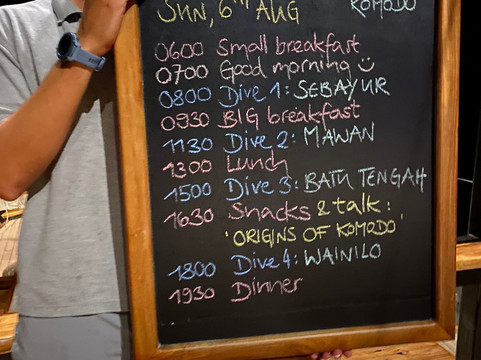 SUN, 6TH AUG KOMODO
0600 Small breakfast
0700 Good morning ☺
0800 Dive 1: SEBAYUR
0930 BIG breakfast
1130 Dive 2: MAWAN
1300 Lunch
1500 Dive 3: BATU TENGAH
1630 Snacks & talk:
'ORIGINS OF KOMODO'
1800 Dive 4: WAINILO
1930 Dinner